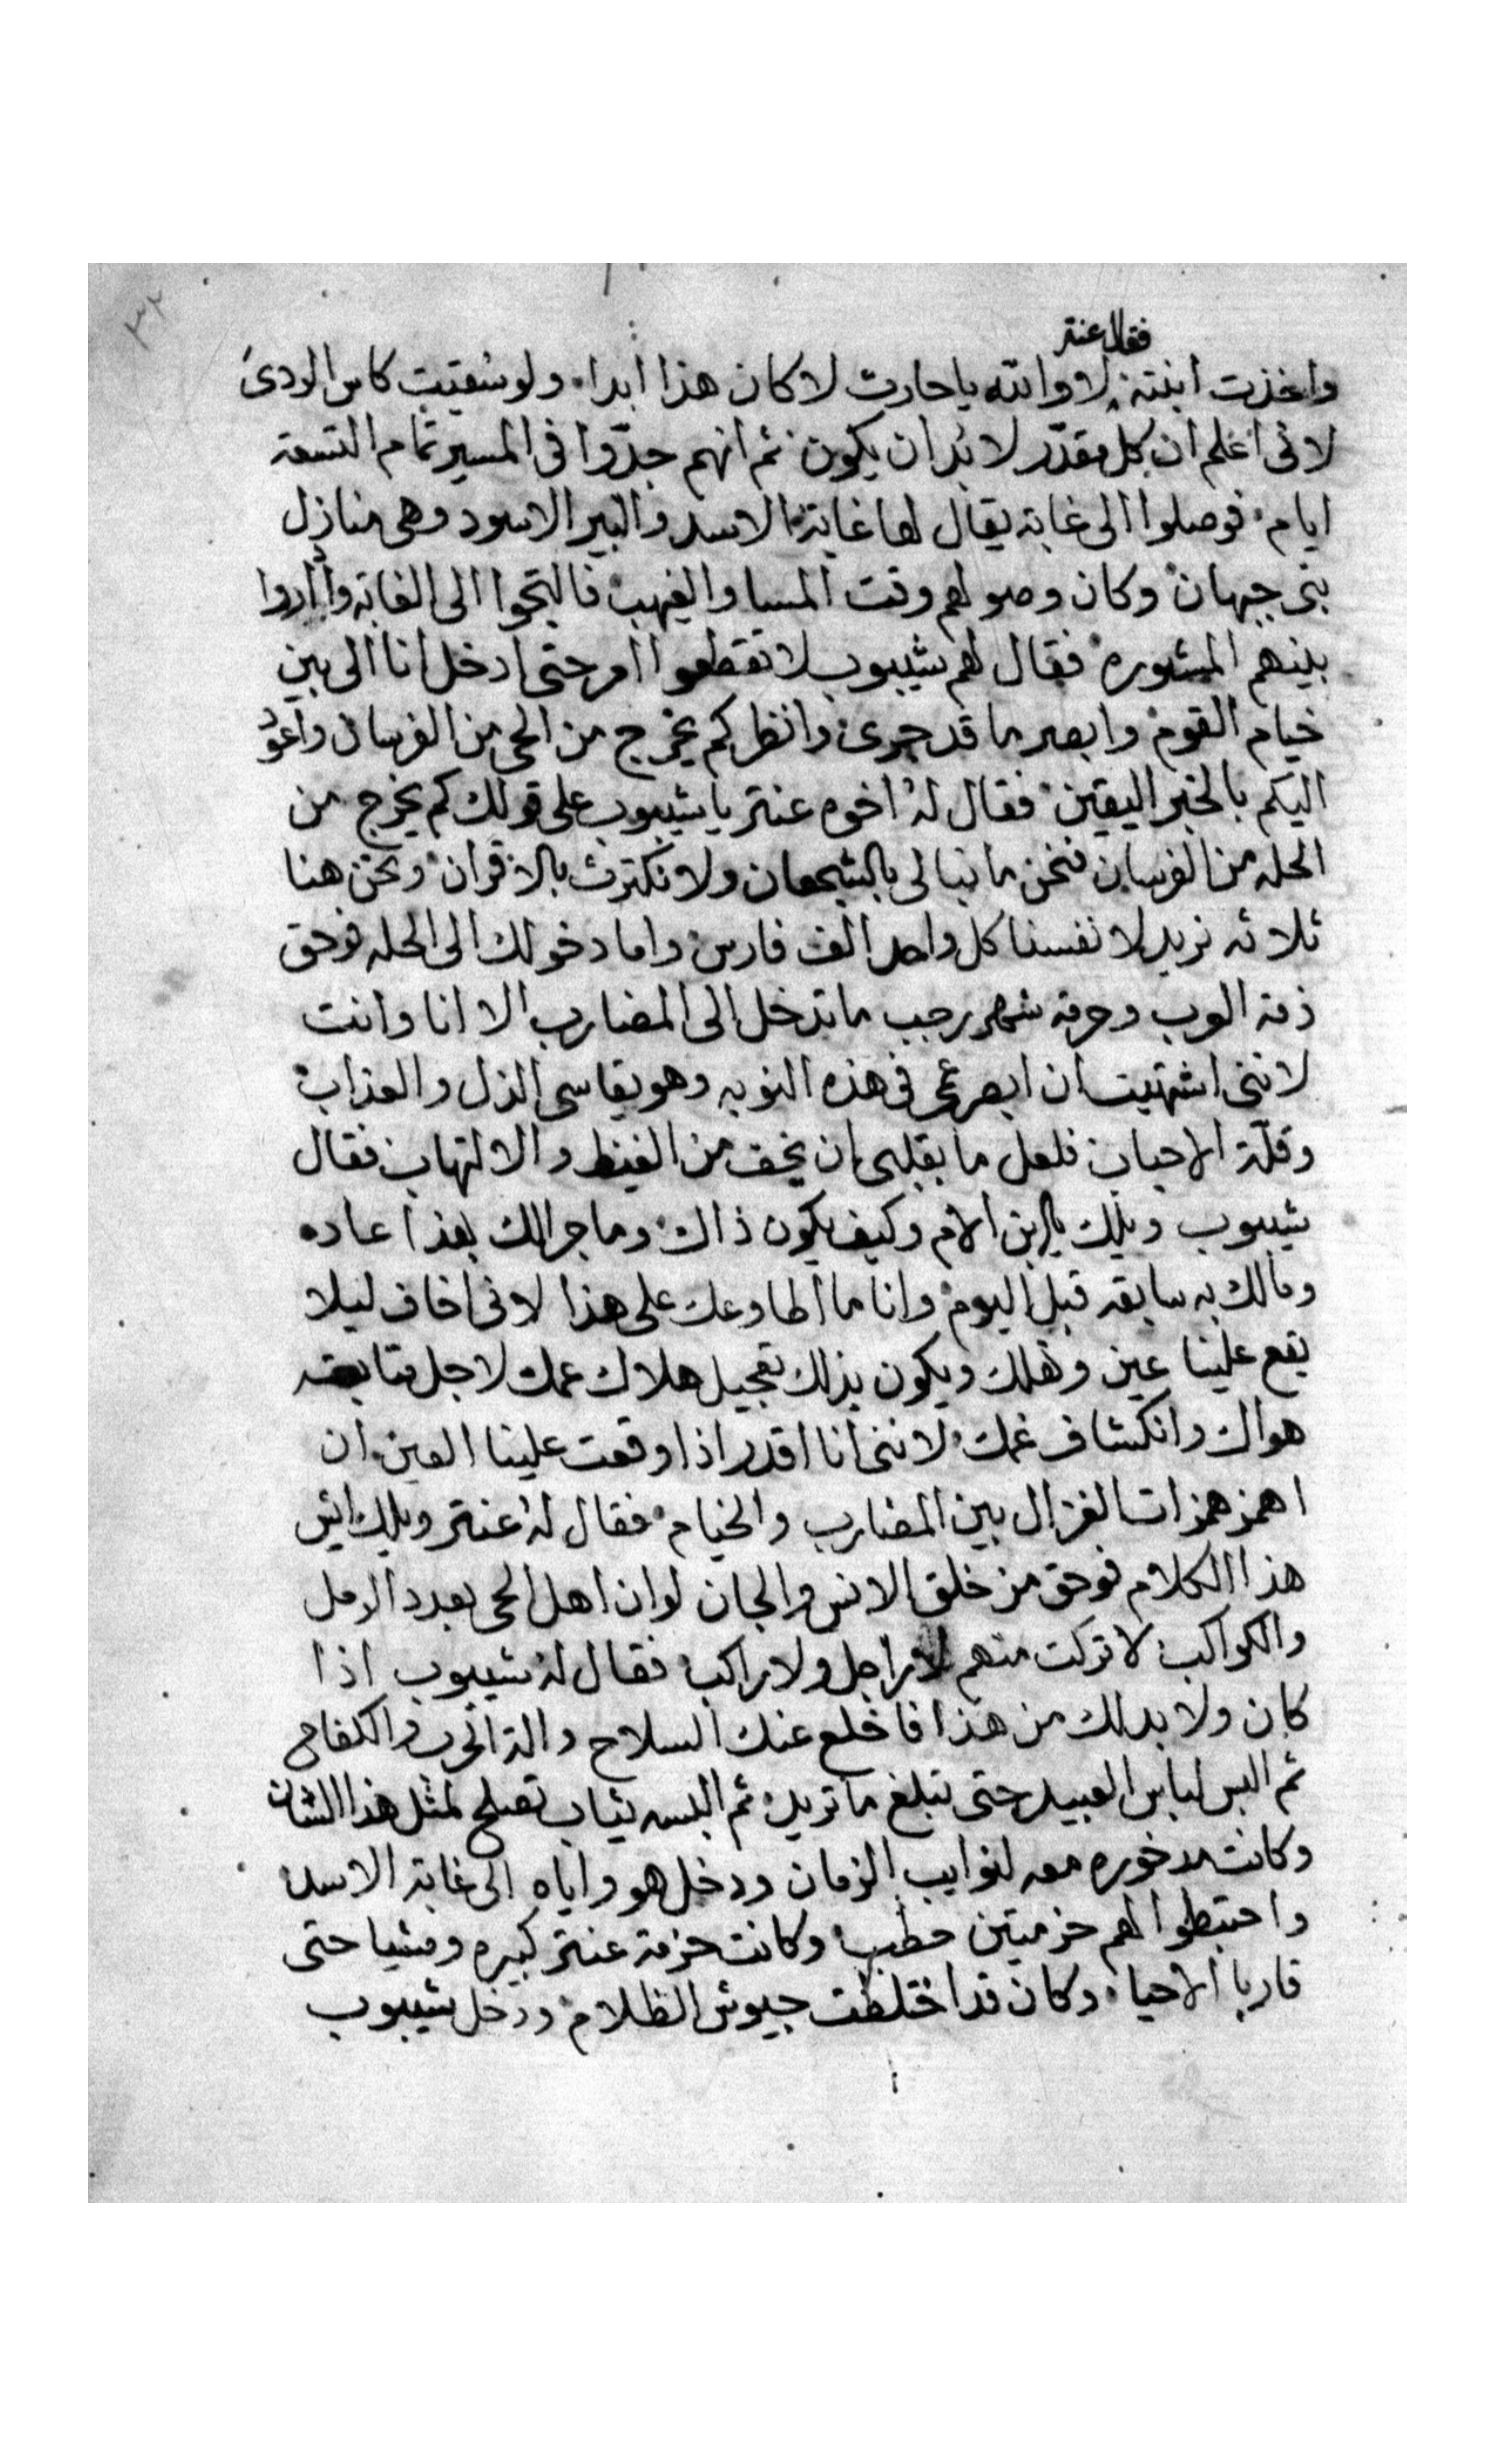 ٣٢
فقال عنتر
واخذت ابنته لا والله يا حارث لا كان هذا ابدا ولو سُقيت كاس الردى
لانى اعلم ان كل مقدّر لا بُد ان يكون ثم انهم جدّوا فى المسير تمام التسعة
ايام فوصلوا الى غابة يقال لها غابة الاسد والبير الاسود وهى منازل
بنى جيهان وكان وصولهم وقت المسا والغيهب فالتجوا الى الغابة وأداروا
بينهم المشوره فقال لهم شيبوب لا تقطعوا امر حتى ادخل انا الى بين
خيام القوم وابصر ما قد جرى وانظر كم يخرج من الحى من الفرسان واعوُد
اليكم بالخبر اليقين فقال لهُ اخوه عنتر يا شيبوب على قولك كم يخرج من
الحله من الفرسان فنحن ما نبالى بالشجعان ولا نكترث بالاقران ونحن هنا
ثلاثه نريد لانفسنا كل واحد الف فارس واما دخولك الى الحله فوحق
ذمة العرب وحرمة شهر رجب ما تدخل الى المضارب الا انا وانت
لاننى اشتهيت ان ابصر عمى فى هذه النوبه وهو يقاسى الذل والعذاب
وقلّة الاحباب فلعل ما بقلبى ان يخف من الغيظ والالتهاب فقال
شيبوب ويلك يا ابن الام وكيف يكون ذاك وما جرا لك بهذا عاده
ومالك به سابقه قبل اليوم وانا ما اطاوعك على هذا لانى اخاف ليلا
يقع علينا عين ونهلك ويكون بذلك تعجيل هلاك عمك لاجل متابعة
هواك وانكشاف غمك لاننى انا اقدر اذا وقعت علينا العين ان
اهمز همزات الغزال بين المضارب والخيام فقال لهُ عنتر ويلك ايش
هذا الكلام فوحق من خلق الانس والجان لو ان اهل الحى بعدد الرمل
والكواكب لا تركت منهم لا راجل ولا راكب فقال لهُ شيبوب اذا
كان ولا بد لك من هذا فاخلع عنك السلاح والة الحرب والكفاح
ثم البس لباس العبيد حتى تبلغ ما تريد ثم البسه ثياب تصلح لمثل هذا الشان
وكانت مدخوره معه لنوايب الزمان ودخل هو واياه الى غابة الاسد
واحتطبوا لهم حزمتين حطب وكانت حزمة عنتر كبيره ومشيا حتى
قاربا الاحيا وكان قد اختلطت جيوش الظلام ودخل شيبوب